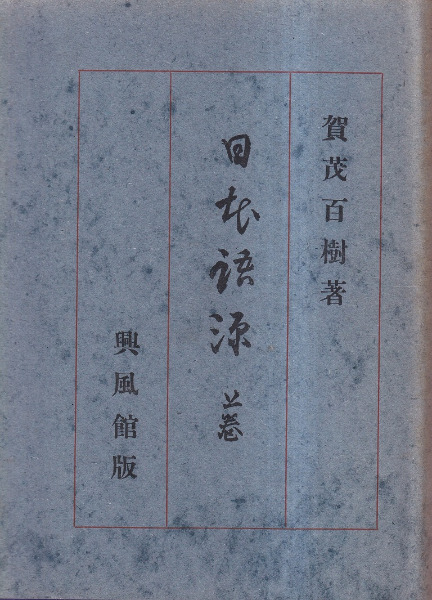 賀茂百樹著
日本語源 上巻
興風館版